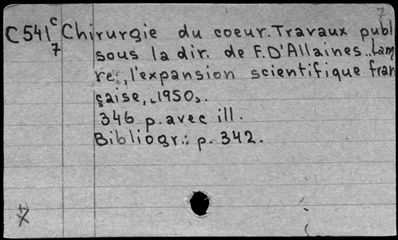 C541 c/7 Chirurgie du coeur. Travaux publ
sous la dir. de F. D'Allaines.
re., l'expansion scientifique fran
çaise, 1950.
346 p. avec ill.
Bibliogr.: p. 342.